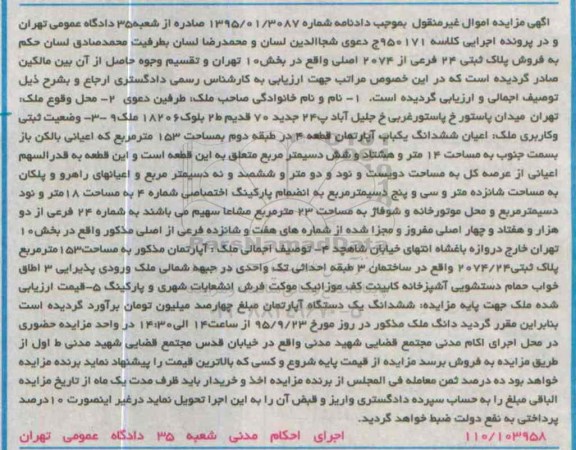 اگهی مزایده اموال غیرمنقول بموجب دادنامه شماره ۱۳۹۵/۰۱/۳۰۸۷ صادره از شعبه۳۵ دادگاه عمومی تهران
و در پرونده اجرایی کلاسه ۹۵۰۱۷۱ج دعوی شجاالدین لسان و محمدرضا لسان بطرفیت محمدصادق لسان حکم
به فروش پلاک ثبتی ۲۴ فرعی از ۲۰۷۴ اصلی واقع در بخش۱۰ تهران و تقسیم وجوه حاصل از آن بین مالکین
صادر گردیده است که در این خصوص مراتب جهت ارزیابی به کارشناس رسمی دادگستری ارجاع و بشرح ذیل
توصیف اجمالی و ارزیابی گردیده است. ۱- نام و نام خانوادگی صاحب ملک: طرفین دعوی ۲- محل وقوع ملک:
تهران میدان پاستور خ پاستورغربی خ جلیل آباد پ۲۴ جدید ۷۰ قدیم ط۲ بلوک۱۸۲۰۶ ملک۹ ۳- وضعیت ثبتی
وکاربری ملک: اعیان ششدانگ یکباب آپارتمان قطعه ۴ در طبقه دوم بمساحت ۱۵۳ مترمربع که اعیانی بالکن باز
بسمت جنوب به مساحت ۱۴ متر و هشتاد و شش دسیمتر مربع متعلق به این قطعه است و این قطعه به قدرالسهم
اعیانی از عرصه کل به مساحت دویست و نود و دو متر و ششصد و نه دسیمتر مربع و اعیانهای راهرو و پلکان
به مساحت شانزده متر و سی و پنج دسیمترمربع به انضمام پارکینگ اختصاصی شماره ۴ به مساحت ۱۸متر و نود
دسیمترمربع و محل موتورخانه و شوفاژ به مساحت ۲۳ مترمربع مشاعا سهیم می باشند به شماره ۲۴ فرعی از دو
هزار و هفتاد و چهار اصلی مفروز و مجزا شده از شماره های هفت و شانزده فرعی از اصلی مذکور واقع در بخش۱۰
تهران خارج دروازه باغشاه انتهای خیابان شاهچد ۴- توصیف اجمالی ملک: آپارتمان مذکور به مساحت۱۵۳مترمربع
پلاک ثبتی۲۰۷۴/۲۴ واقع در ساختمان ۳ طبقه احداثی تک واحدی در جبهه شمالی ملک ورودی پذیرایی ۳ اطاق
خواب حمام دستشویی آشپزخانه کابینت کف موزائیک موکت فرش انشعابات شهری و پارکینگ ۵-قیمت ارزیابی
شده ملک جهت پایه مزایده: ششدانگ یک دستگاه آپارتمان مبلغ چهارصد میلیون تومان برآورد گردیده است
بنابراین مقرر گردید دانگ ملک مذکور در روز مورخ ۹۵/۹/۲۳ از ساعت۱۴ الی۱۴:۳۰ در واحد مزایده حضوری
در محل اجرای اکام مدنی مجتمع قضایی شهید مدنی واقع در خیابان قدس مجتمع قضایی شهید مدنی ط اول از
طریق مزایده به فروش برسد مزایده از قیمت پایه شروع و کسی که بالاترین قیمت را پیشنهاد نماید برنده مزایده
خواهد بود ده درصد ثمن معامله فی المجلس از برنده مزایده اخذ و خریدار باید ظرف مدت یک ماه از تاریخ مزایده
الباقی مبلغ را به حساب سپرده دادگستری واریز و قبض آن را به این اجرا تحویل نماید درغیر اینصورت ۱۰درصد
پرداختی به نفع دولت ضبط خواهد گردید.
۱۱۰/۱۰۳۹۵۸ اجرای احکام مدنی شعبه ۳۵ دادگاه عمومی تهران